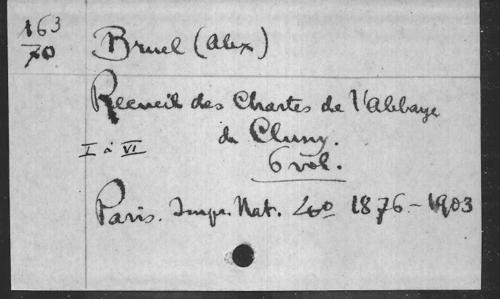 163
70
Bruel (Alex)
Recueil des Chartes de l'Abbaye
de Cluny.
I à VI
6 vol.
Paris. Impr. Nat. 4o 1876-1903